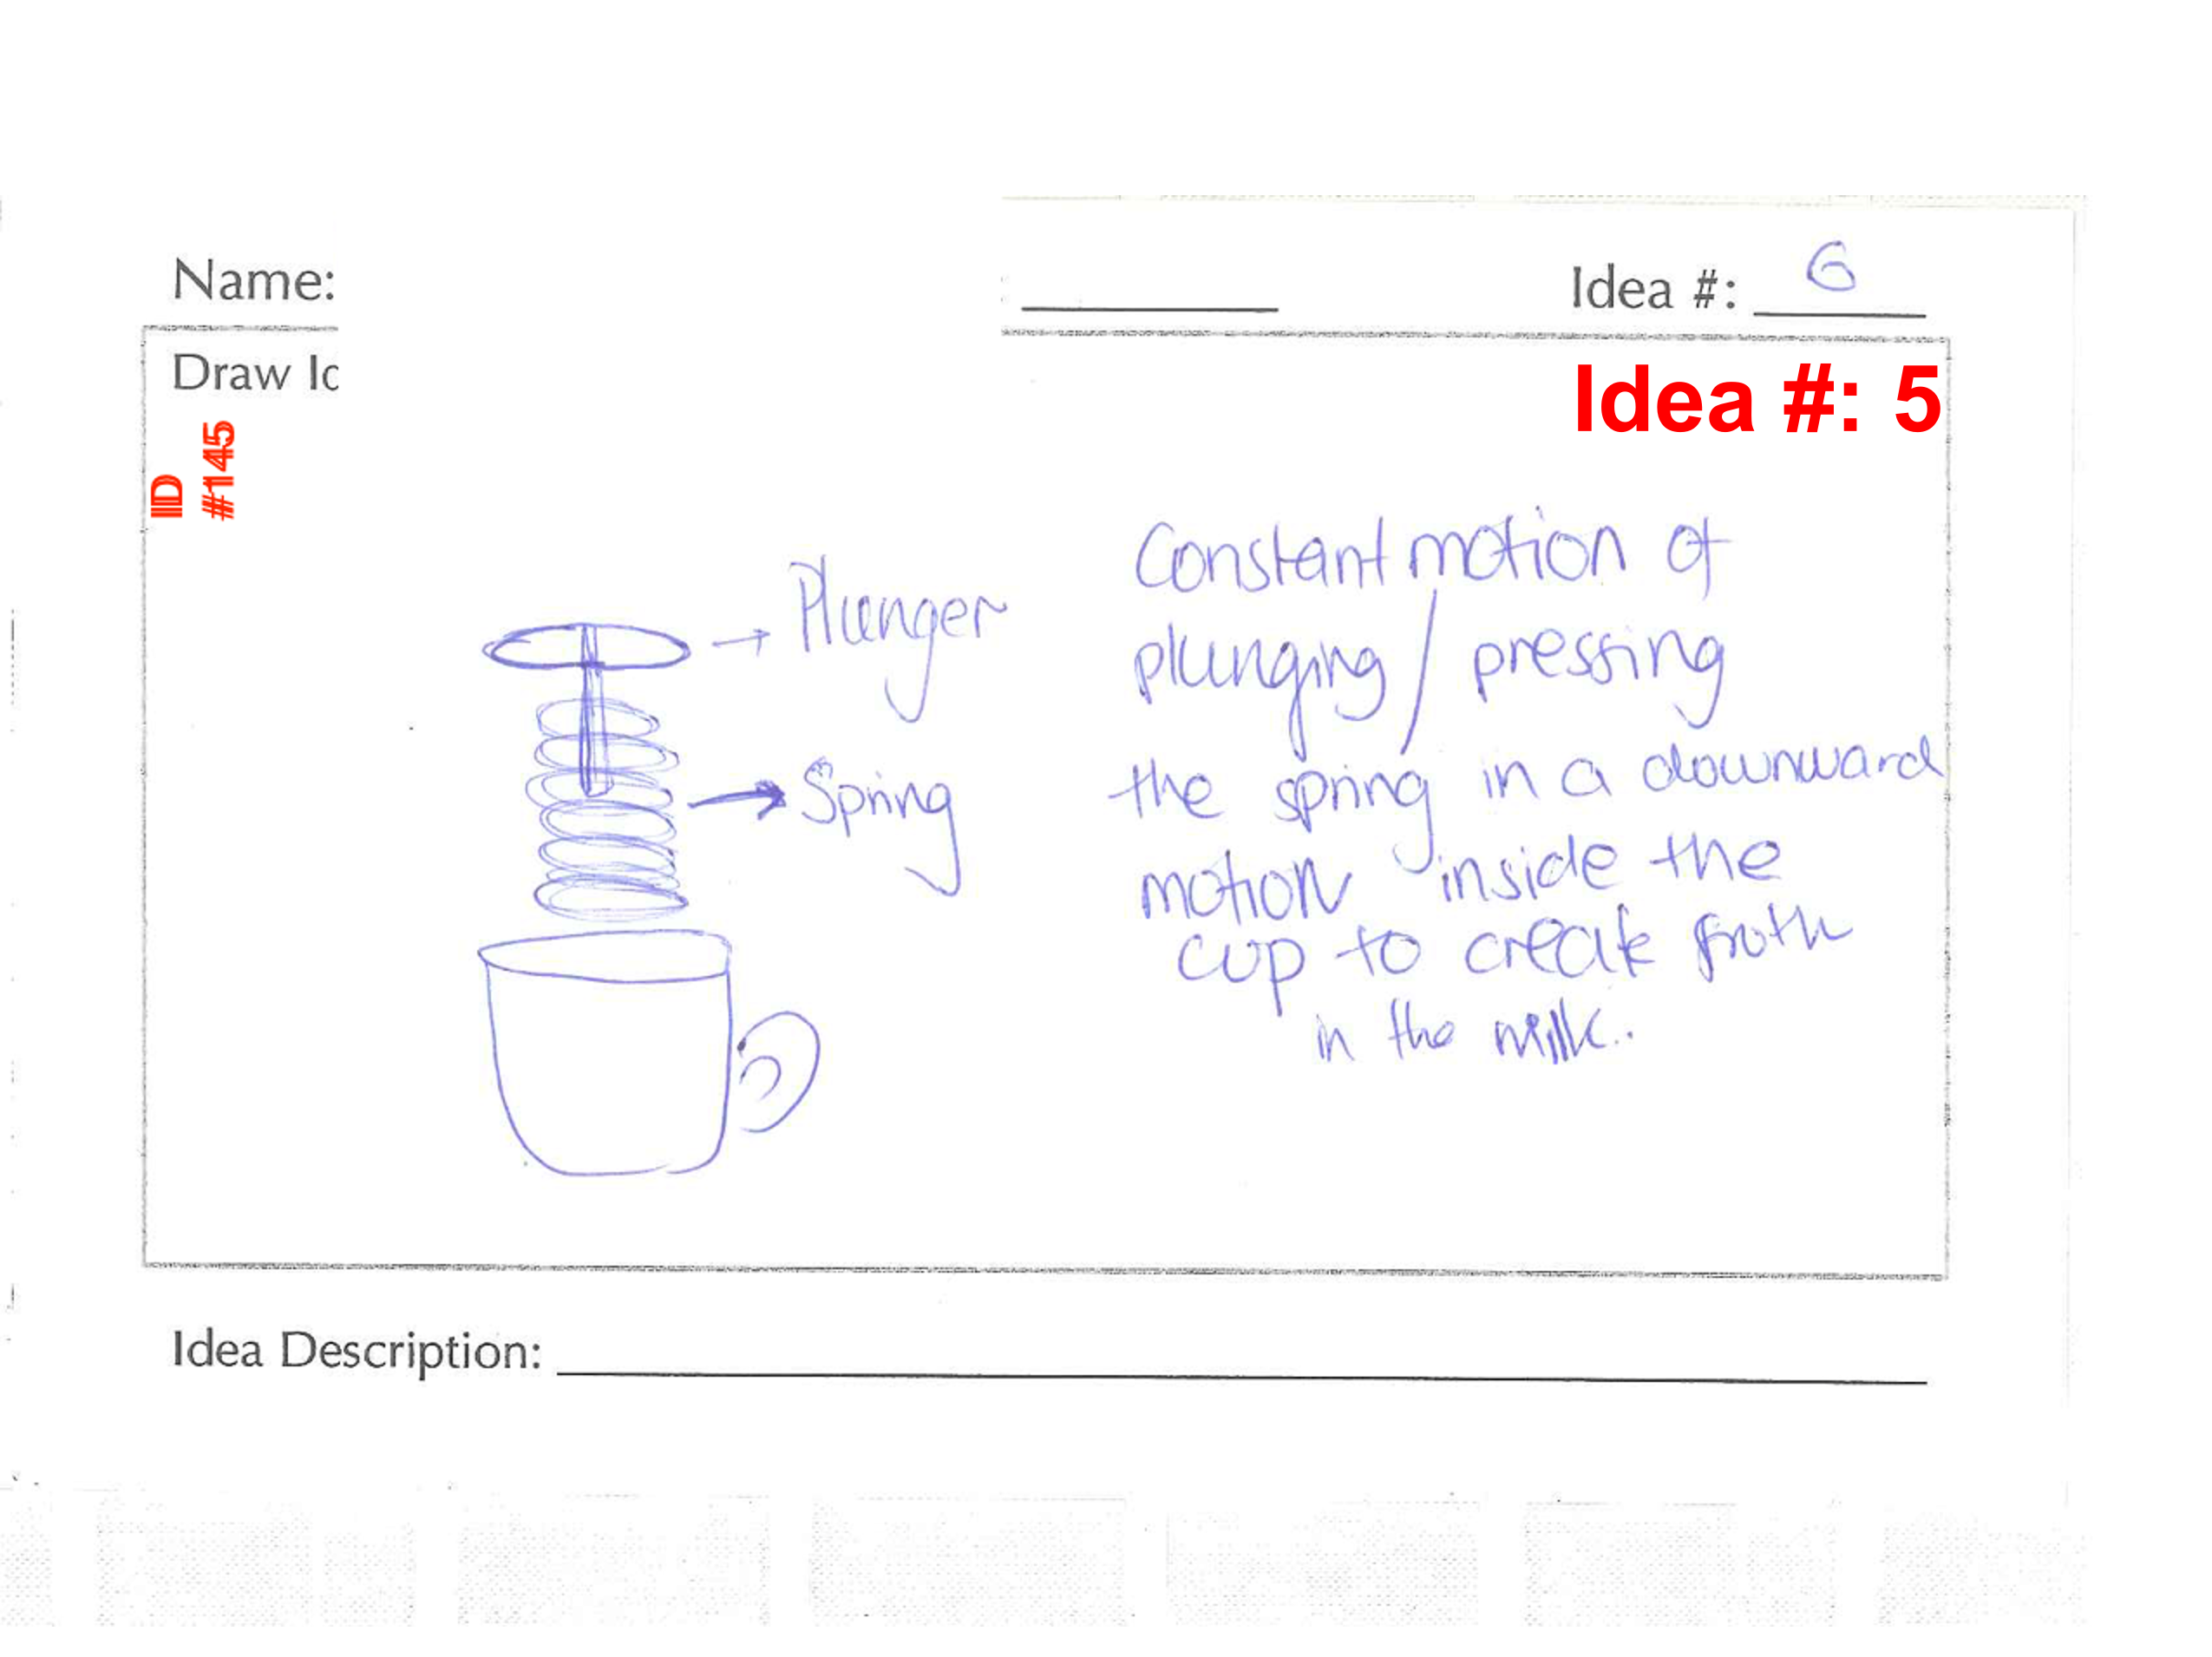 Name:
Idea #: 6
Draw Id
Idea #: 5
ID
#145
Plunger
Spring
Constant motion of
plunging / pressing
the spring in a downward
motion inside the
cup to create froth
in the milk.
Idea Description: